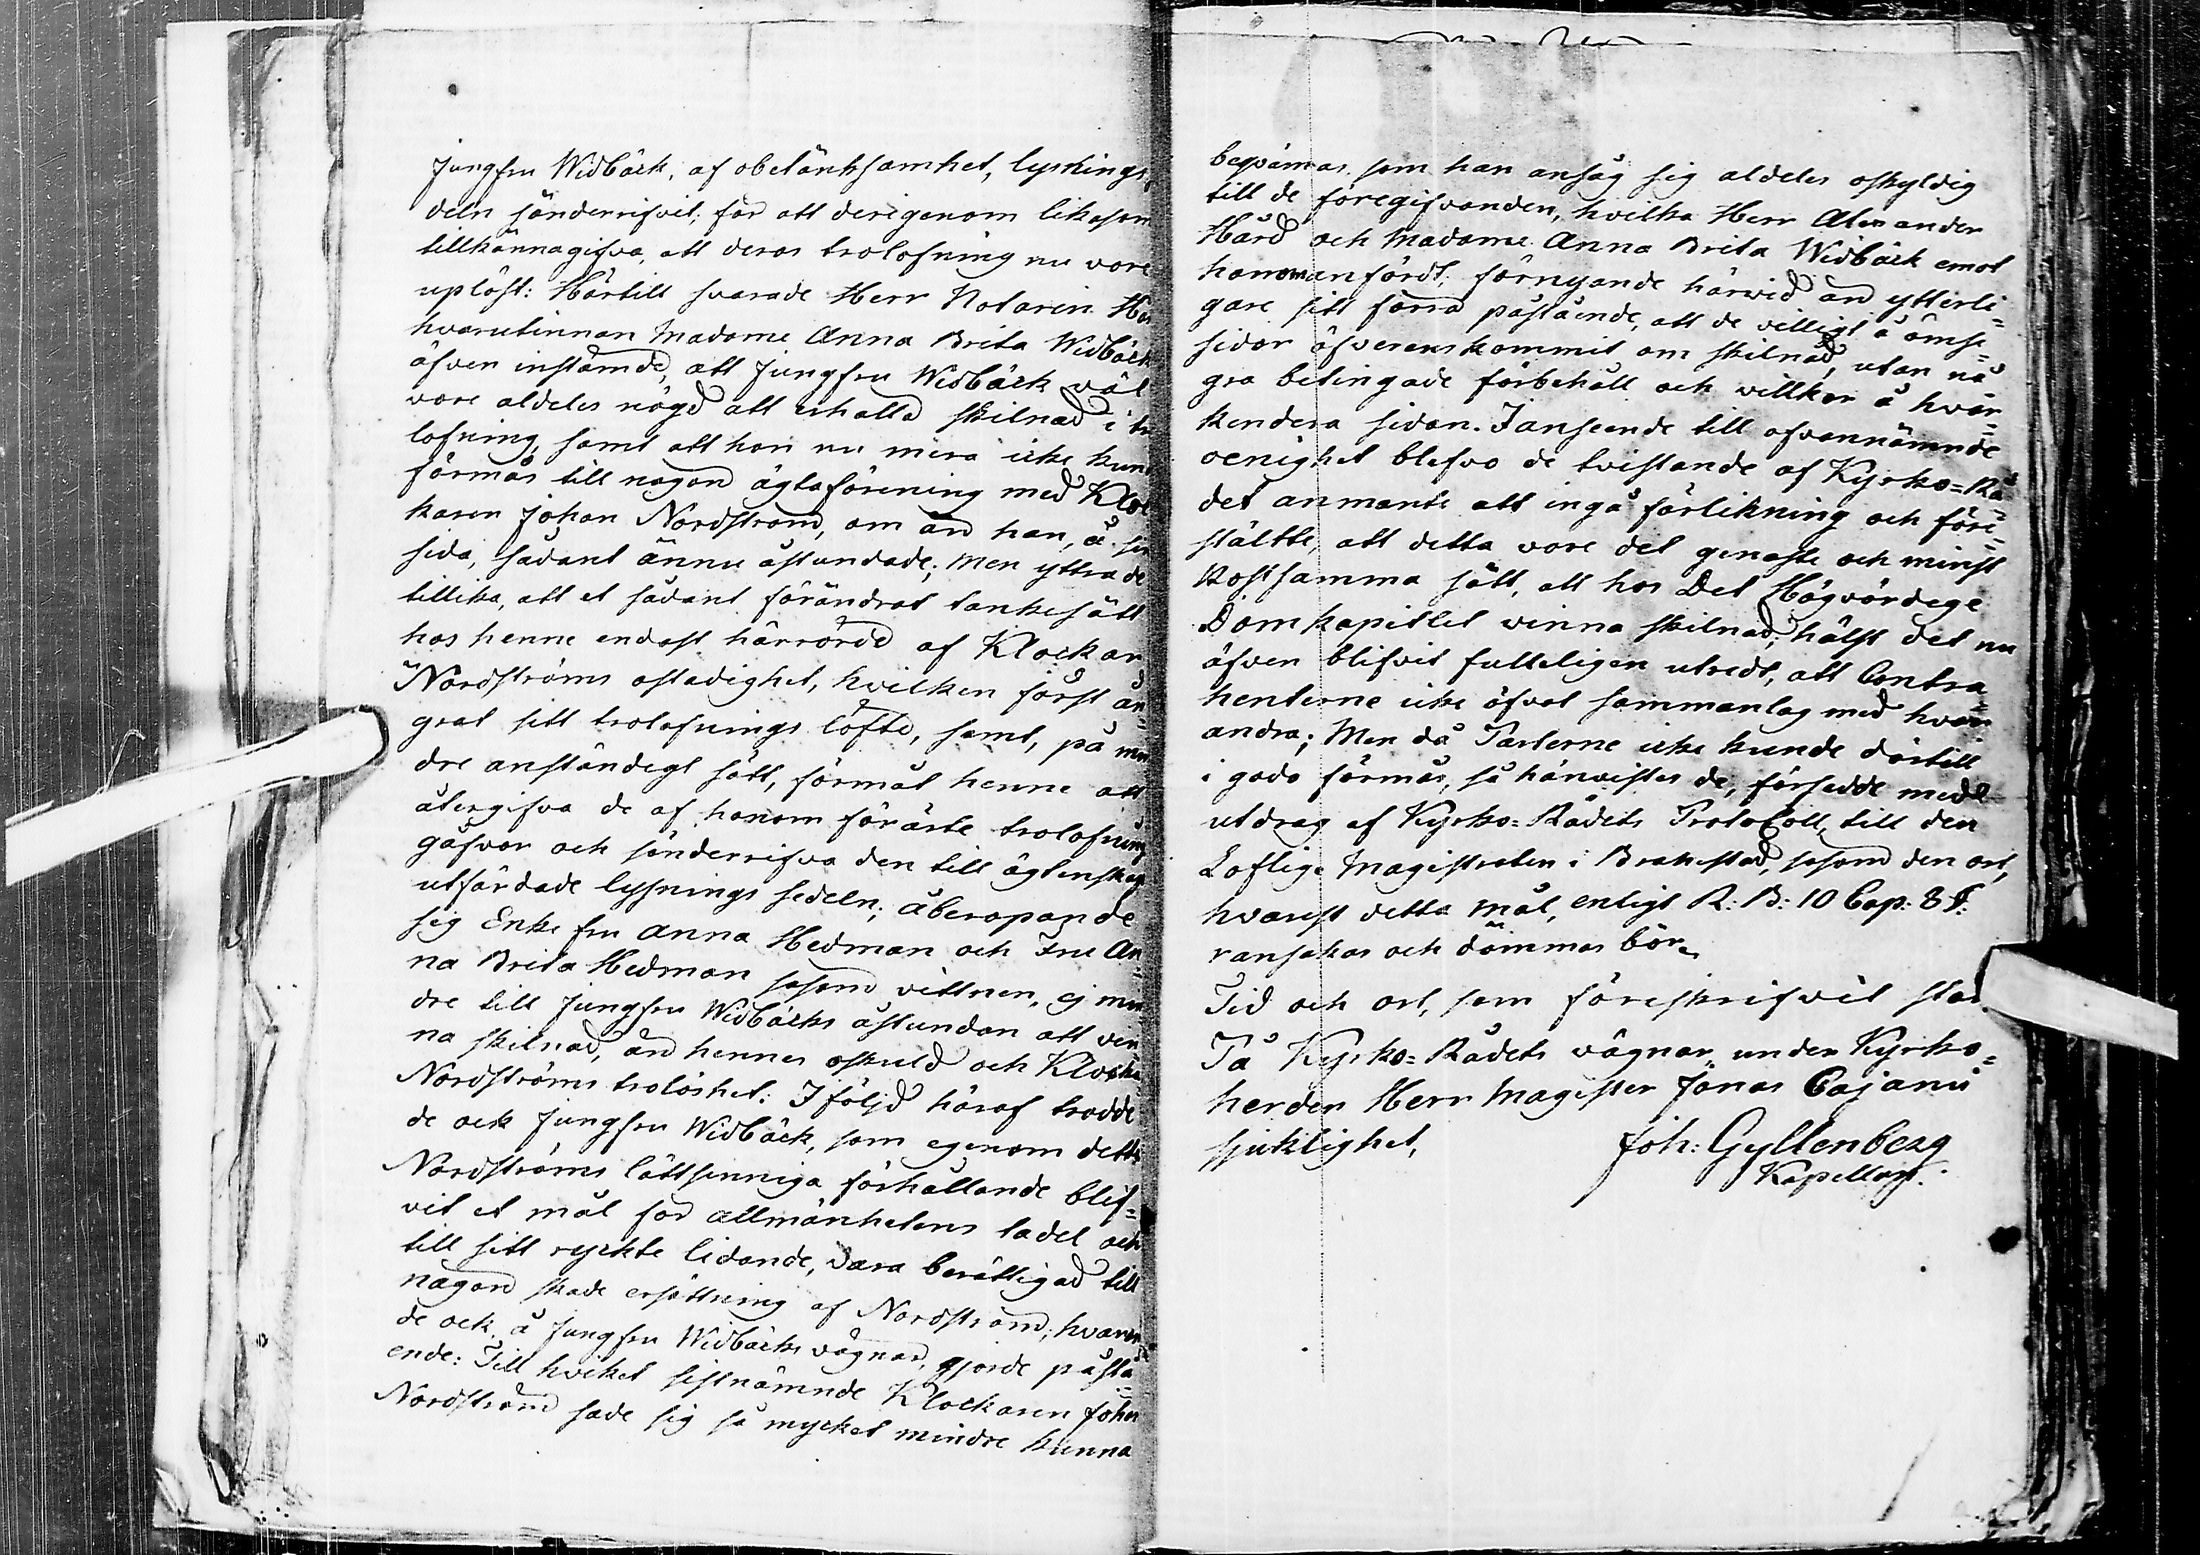 Jungfru Widbäck, af obetänksamhet, lysnings,
deln sönderrifvit; för att derigenom likasom
tillkännagifva, att deras trolofning nu vore
uplöst: Härtill svarade Herr Notarien Hår
hvarutinnan Madame Anna Brita Widbäck
äfven instämde, att Jungfru Widbäck väl
vore aldeles nögd att erhålla skilnad i tro
lofning, samt att hon nu mera icke kun
förmås till någon ägtaförening med Kloc
karen Johan Nordström, om än han, å sin
sida, sådant ännu åstundade; Men yttrade
tillika, att et sådant förändrat tankesätt
hos henne endast härrörde af Klockar
Nordströms ostadighet, hvilken först ån=
grat sitt trolofnings löfte, samt, på min
dre anständigt sätt, förmåt henne att
återgifva de af honom förärte trolofning
gåfvor och sönderrifva den till ägtenskap
utfärdade lysnings sedeln; åberopande
sig Enke fru Anna Hedman och Fru An=
na Brita Hedman såsom vittnen, ej min
dre till Jungfru Widbäcks åstundan att vin
na skilnad, än hennes oskuld och Klocka
Nordströms trolöshet: I följd häraf trodde
de ock Jungfru Widbäck, som egenom detta
Nordströms lättsinniga förhållande blif=
vit et mål för allmänhetens tadel och
till sitt ryckte lidande, vara berättigad till
någon skade ersättning af Nordström; hvarom
de ock å Jungfru Widbäcks vägnar, gjorde påstå
ende: Till hvilket sistnämnde Klockaren Johan
Nordström sade sig så mycket mindre kunna
beqvämas som han ansåg sig aldeles oskyldig
till de föregifvanden, hvilka Herr Alexander
Hård och Madame Anna Brita Widbäck emot
honom anfördt; förnyande härvid än ytterli=
gare sitt förra påstående, att de villigt å ömse
sidor öfverenskommit om skilnad, utan nå=
gra betingade förbehåll och willkor å hvar=
kendera sidan. I anseende till ofvannämnde
oenighet blefvo de tvistande af Kyrko=Rå=
det anmante att ingå förlikning och före=
stältte, att detta vore det genaste och minst
kostsamma sätt, att hos Det Högvördige
Domkapitlet vinna skilnad; hälst det nu
äfven blifvit fulleligen utredt, att Contra=
henterne icke öfvat sammanlag med hvar
andra; Men då Parterne icke kunde därtill
i godo förmås, så hänvistes de, försedde med
utdrag af Kyrko=Rådets Protocoll, till den
Loflige Magistraten i Brahestad, såsom den ort,
hvarest detta mål, enligt R: B: 10 Cap: 8 §:
ransakas och dömmas bör.
Tid och ort, som föreskrifvit står
På Kyrko=Rådets vägnar, under Kyrko=
herden Herr Magister Jonas Cajani
sjuklighet,
Joh: Gyllenberg
Kapellan.